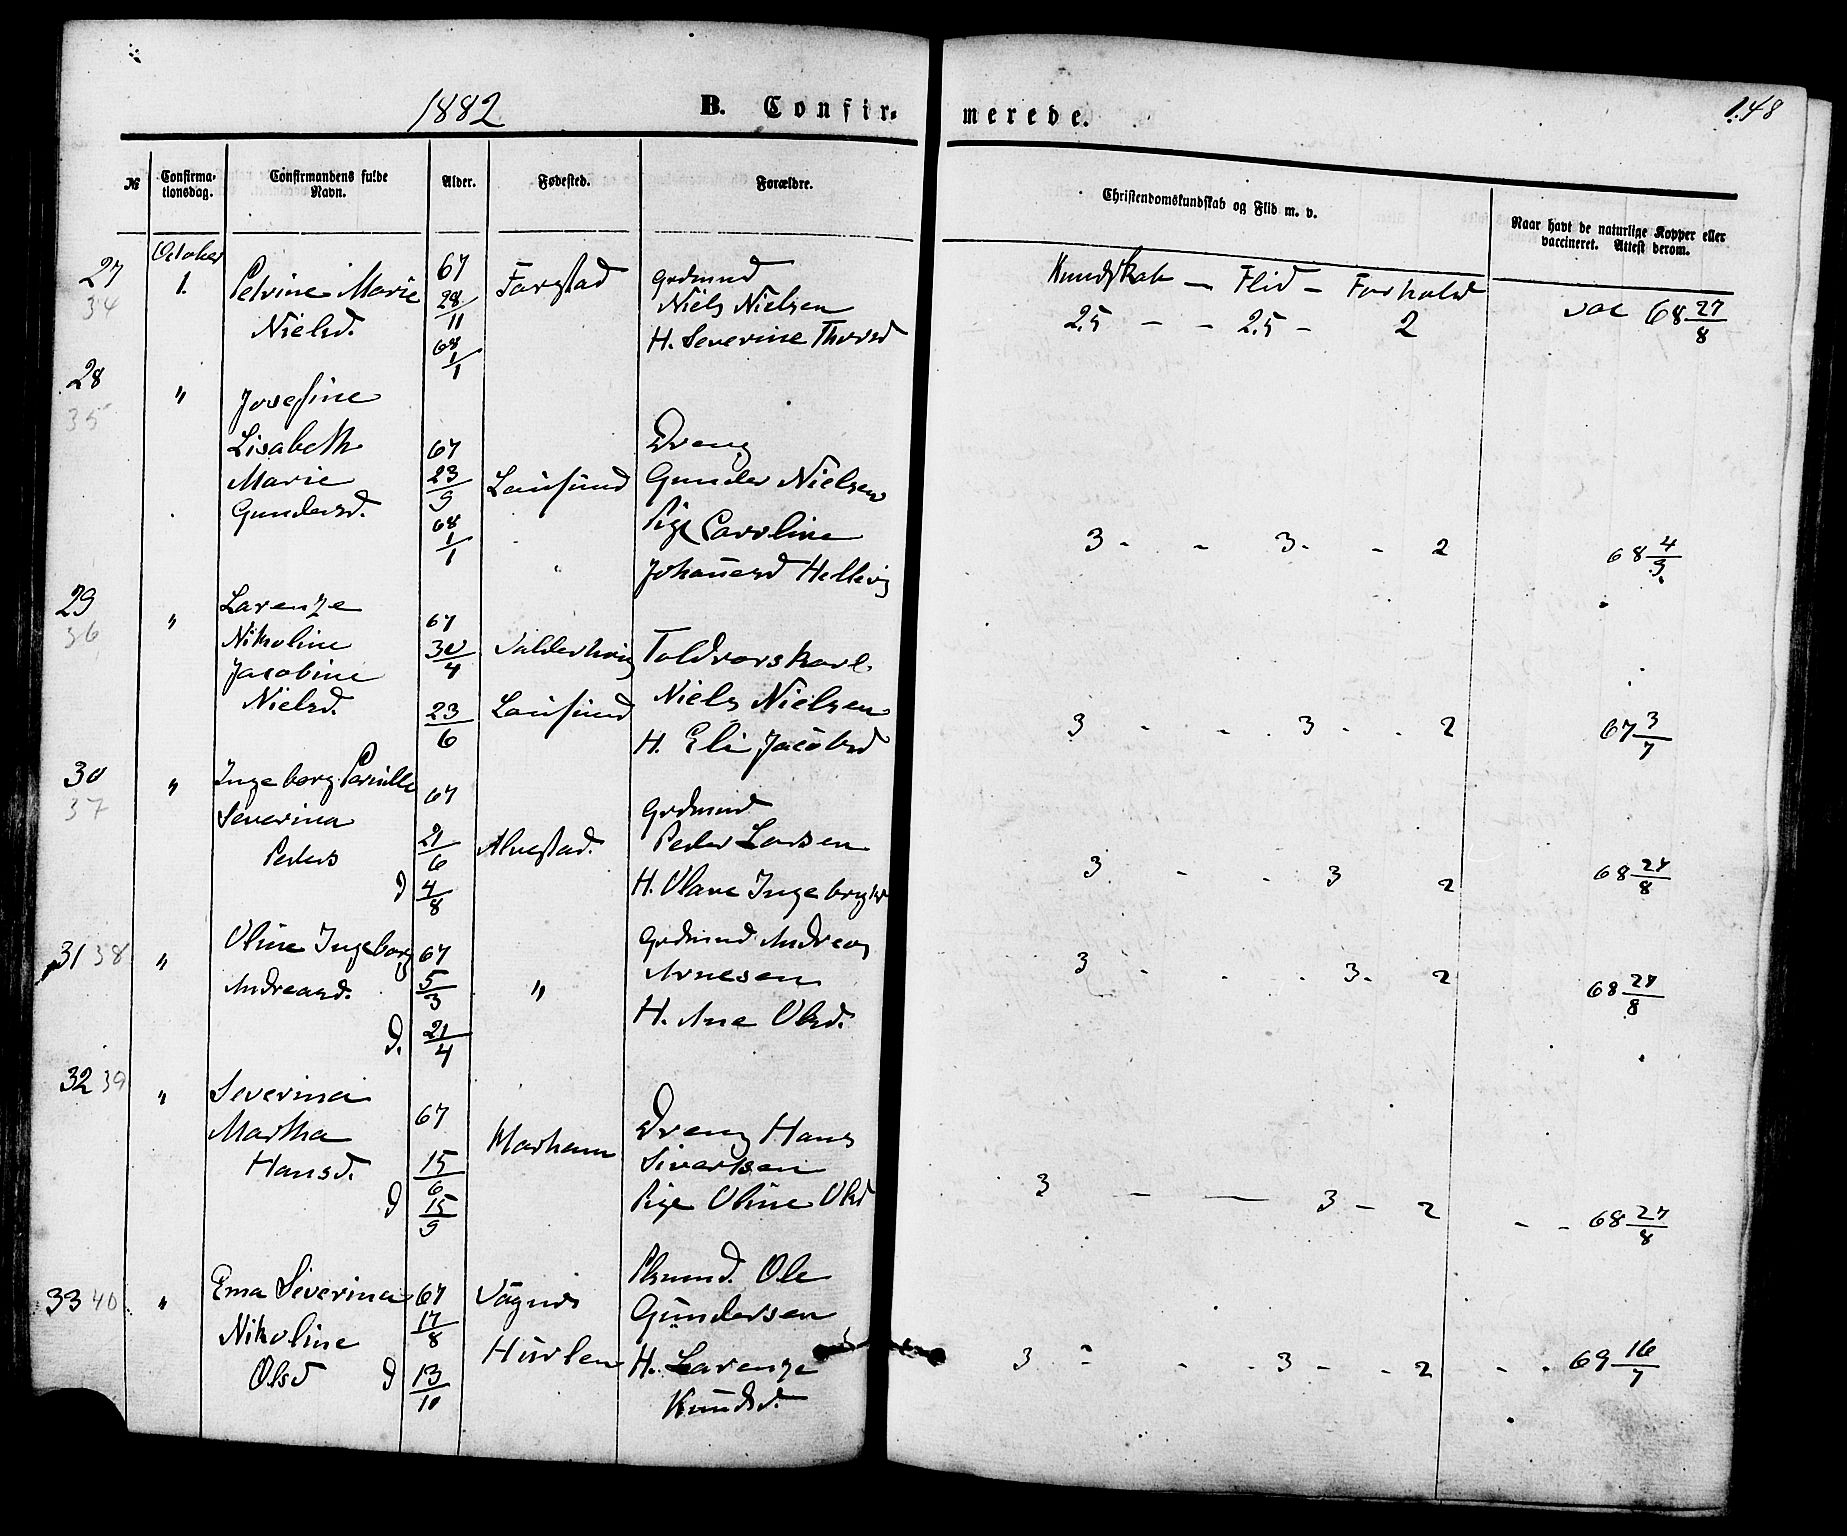 1882 B. Confirmerede. 148
№ Confirmationsdag. Confirmandens fulde Navn. Alder. Fødested. Forældre. Christendomskundskab og Flid m. v. Naar havt de naturlige Kopper eller vaccineret. Attest derom.
October
27 1. Petrine Marie 67 Farstad Grdmnd Kundskab - Flid - Forhold
34 Nielsd. 28/11 Niels Nielsen 2.5 - - 2.5 - 2 vac 68 27/8
68 1/1 H. Severine Thorsd
28 " Josefine
35 Lisabeth 67 Dreng
Marie 23/9 Lausund Gunder Nielsen
Gundersd. 68 1/1 Pige Caroline 3 - - 3 - - 2 68 4/9
Johannesd Hellevig
29 " Larenze 67
36 Nikoline 30/4 Valderhoug Toldroerskarl
Jacobine Niels Nielsen
Nielsd. 23/6 Lausund H. Eli Jacobsd 3 - - 3 - - 2 67 3/7
30 " Ingeborg Pernille 67
37 Severina Grdmnd
Peders 21/6 Alnestad. Peder Larsen
d 4/8 H. Olave Ingebrigtsd 3 - - 3 2 68 27/8
31 38 " Oline Ingeborg 67 Grdmnd Andreas
Andreasd. 5/3 " Arnesen 3 - - 3 - 2 68 27/8
d. 21/4 H. Ane Olsd.
32 39 " Severina
Martha 67 Harham Dreng Hans
Hansd. 15/6 Sivertsen
d 15/9 Pige Oline Olsd 3 - - 3 - 2 - - 68 27/8
33 40 " Ema Siverina 67 Ole
Nikoline 17/8 Gundersen
Olsd d 13/10 Hurlen H. Larenze 3 - - 3 - - 2 - - 69 16/7
Knudsd.